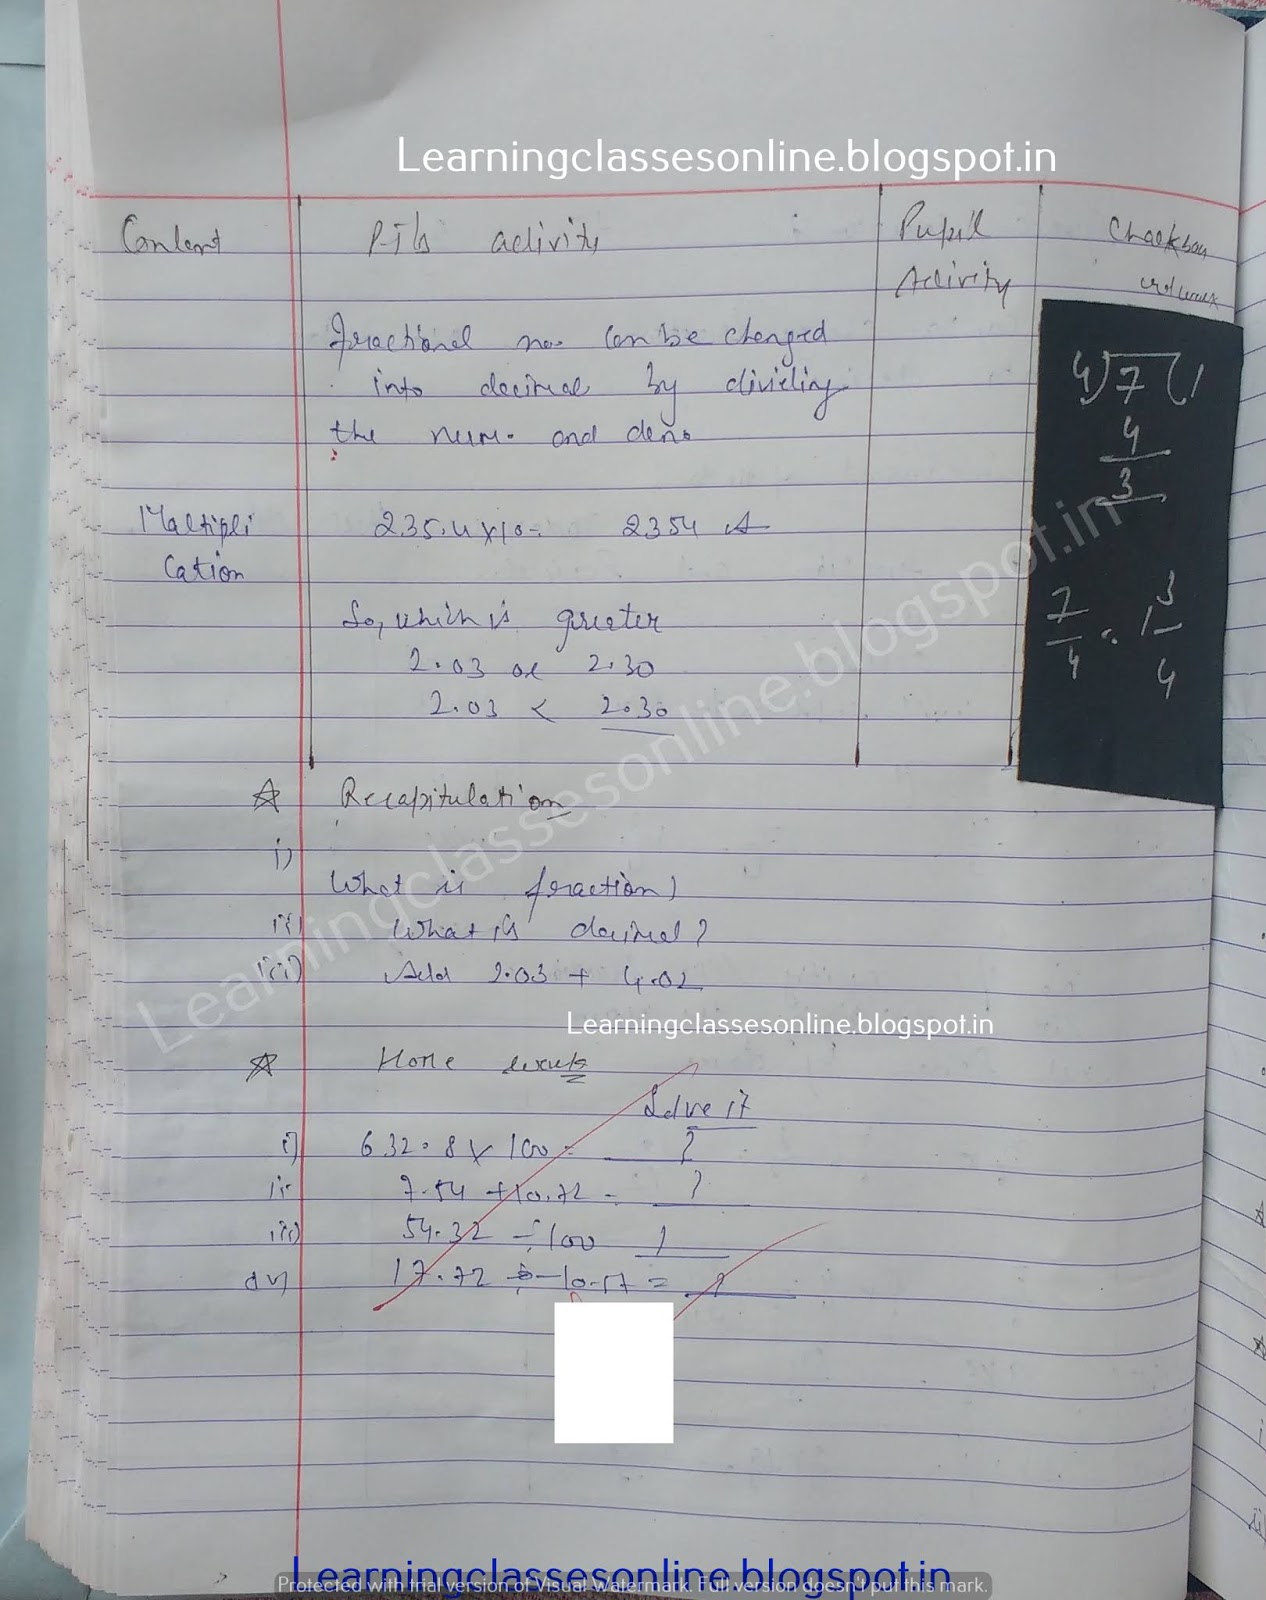 Learningclassesonline.blogspot.in
Content
P.T's activity
Pupil
Activity
Chalkboa
rd work
Fractional no. can be changed
into decimal by dividing
the num. and deno
4)7(1
4
3
Multipli
cation
235.4x10= 2354 A
7/4 = 1 3/4
So, which is greater
2.03 or 2.30
2.03 < 2.30
Recapitulation
i)
What is fraction)
ii) What is decimal?
iii) Add 2.03 + 4.02
Learningclassesonline.blogspot.in
Home work
Solve it
i) 632.8 x 100 = ?
ii- 7.54 + 10.72 = ?
iii) 54.32 ÷ 100 ?
iv) 17.72 - 10.57 = ?
Learningclassesonline.blogspot.in
Learningclassesonline.blogspot.in
Protected with trial version of Visual Watermark. Full version doesn't put this mark.